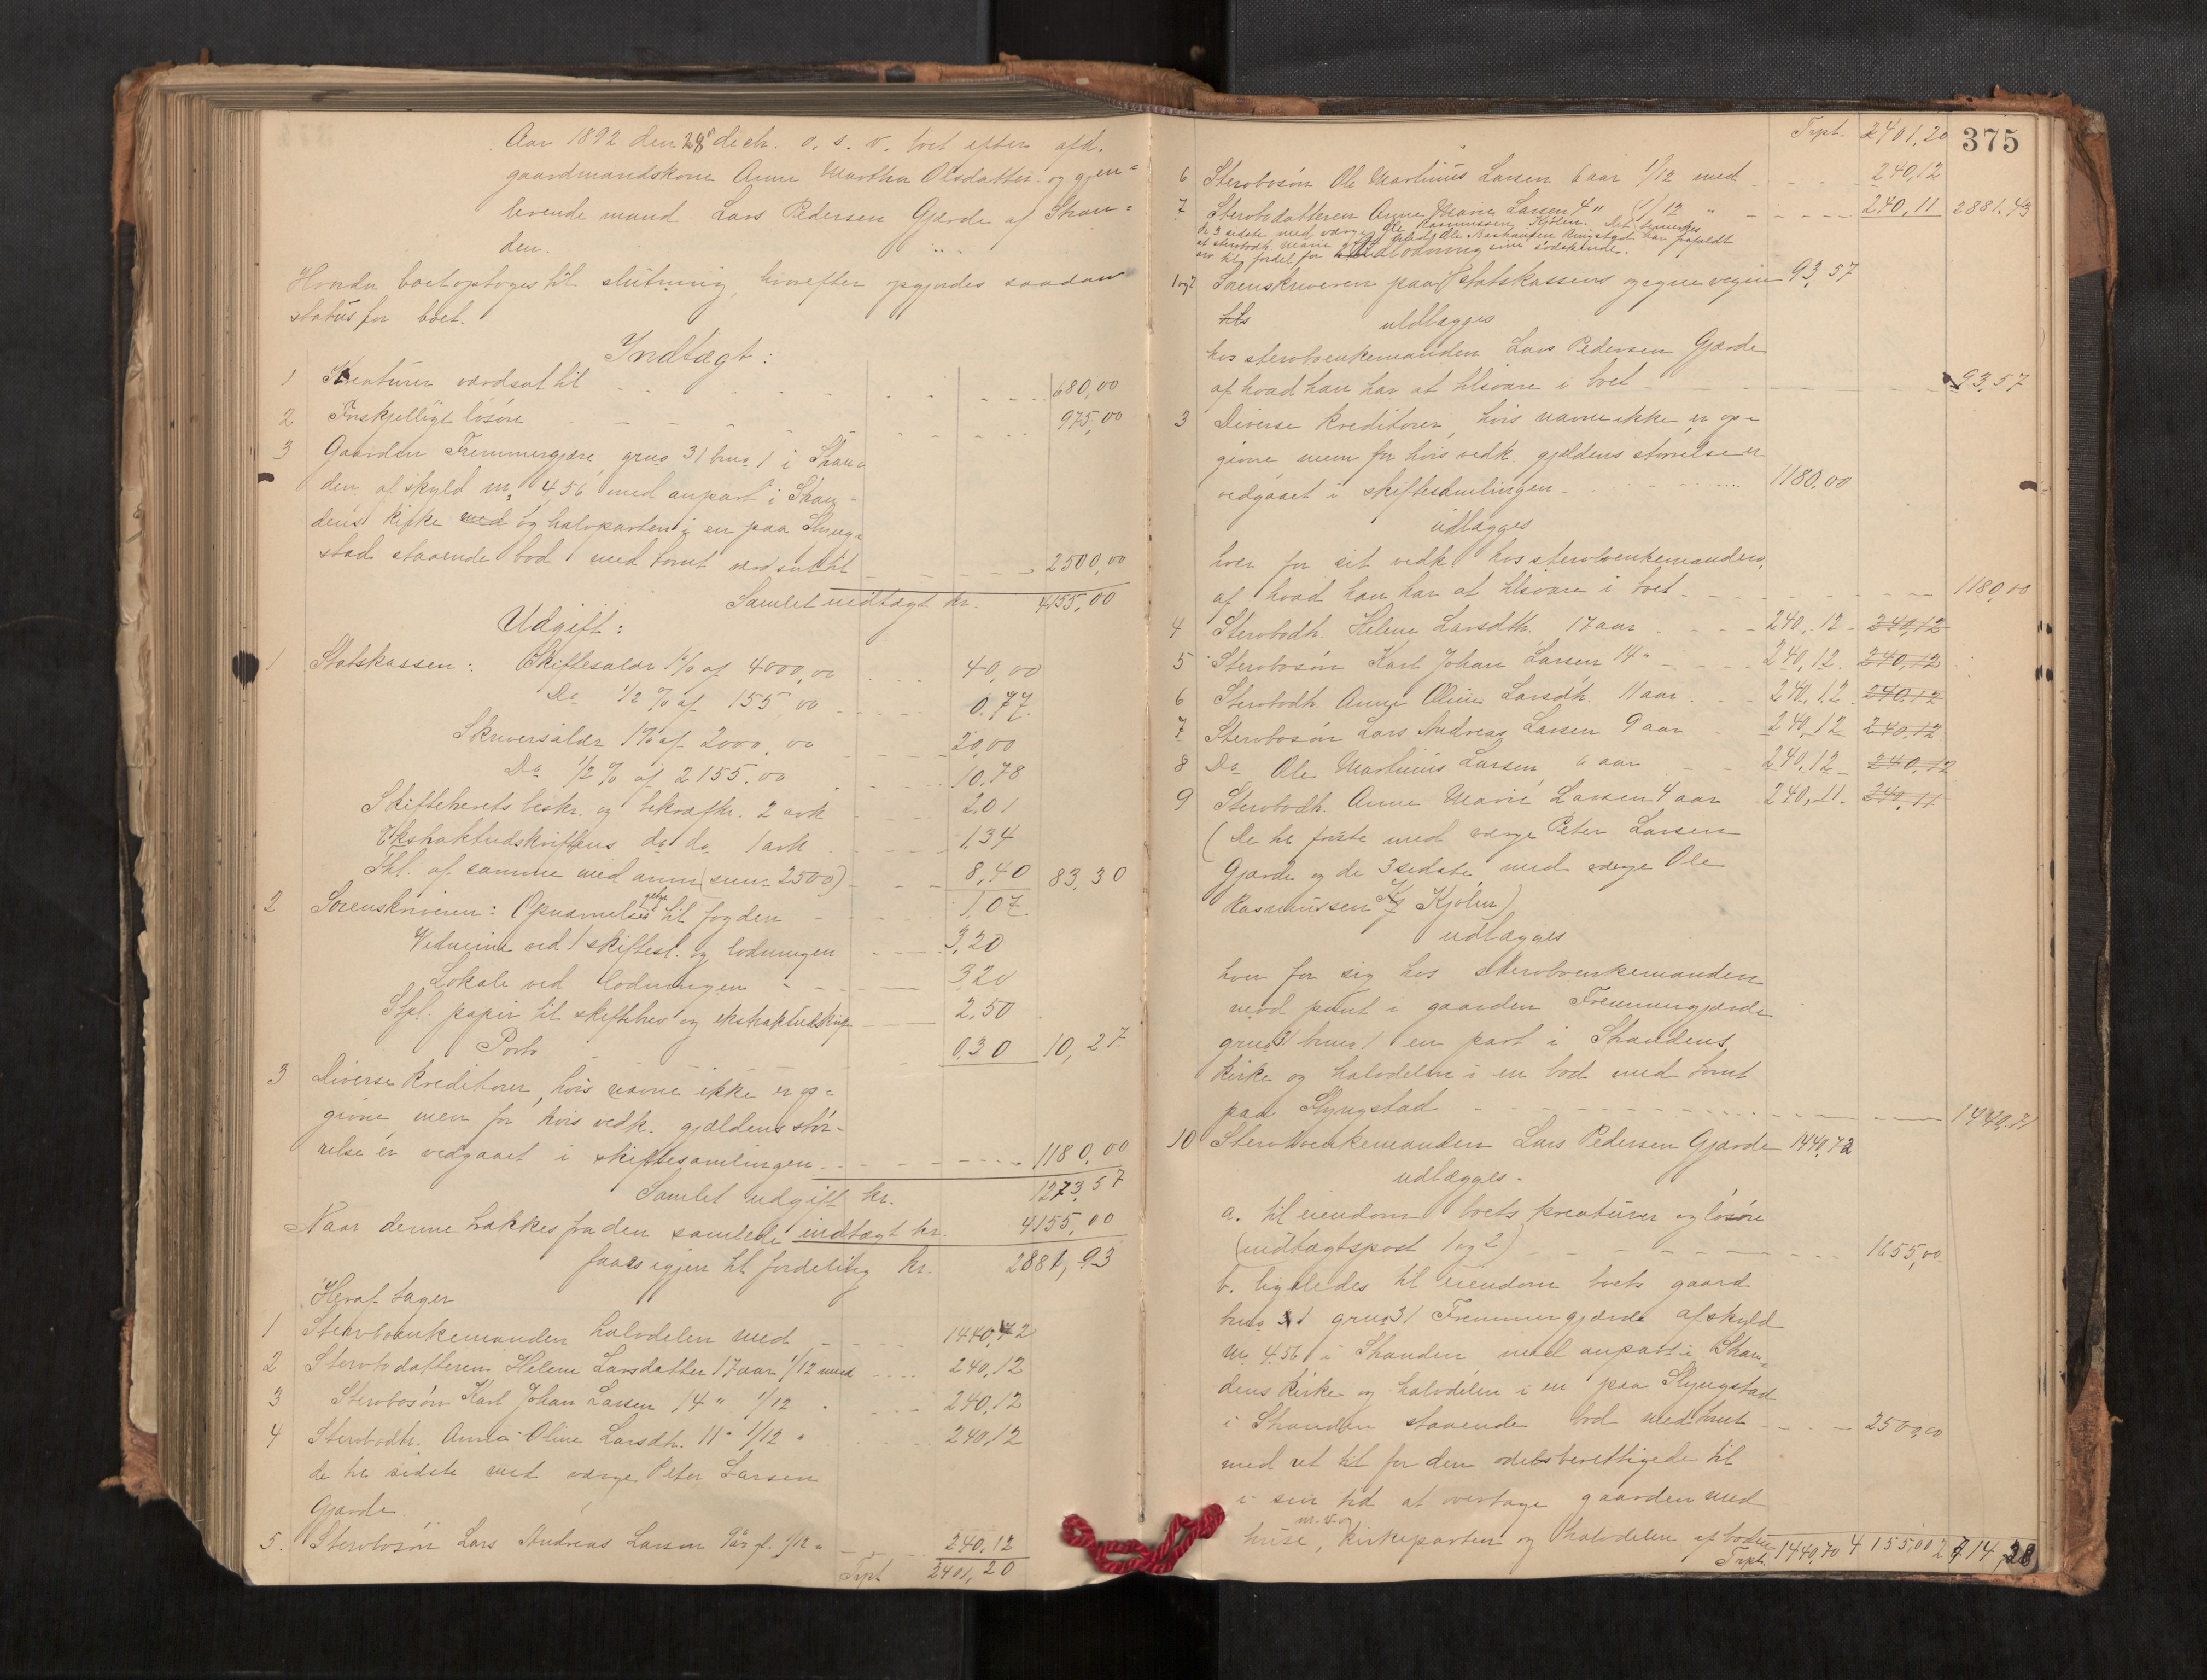 Aar 1892 den 28' decbr. o. s. v. boet efter afd.
gaardmandskone Anne Martha Olsdatter og gjen=
levende mand Lars Pedersen Gjærde af Stran=
den.
Hvorda boet optoges til slutning, hvorefter opgjordes saadan
status for boet.
Indtægt:
1 Kreaturer værdsat til 680,00
2 Forskjelligt løsøre 975,00
3 Gaarden Fremmergjære, gno 31 bno 1 i Stran=
den af skyld m. 4,56 med anpart i Stran=
dens kirke med og halvparten i en paa Slyng=
stad staaende bod med tomt værdsat til 2500,00
Samlet indtægt kr. 4155,00
Udgift:
1 Statskassen: Skiftesalær 1% af 4000,00 40,00
Do ½ % af 155,00 0,77
Skriversalær 1% af 2000,00 20,00
Do ½ % af 2155,00 10,78
Skiftebrevets beskr. og bekræftn. 2 ark 2,01
Ekstraktudskriftens do do 1 ark 1,34
Thl. af samme med anm (sum 2500) 8,40 83,30
2 Sorenskriveren: Opnævnelses gebyr til fogden 1,07
Vidnerne ved 1 skiftesl. og lodningen 3,20
Lokale ved lodningen 3,20
Stpl. papir til skiftebrev og ekstraktudskrift 2,50
Porto 0,30 10,27
3 Diverse kreditorer, hvis navne ikke er op=
givne men for hvis vedk. gjældens stør=
relse er vedgaaet i skiftesamlingen 1180,00
Samlet udgift kr. 1273,57
Naar denne trækkes fra den samlede indtægt kr. 4155,00
faaes igjen til fordeling kr. 2881,43
Heraf tager
1 Stervboenkemanden halvdelen med 1440,72
2 Stervbodatteren Helene Larsdatter 17 aar 1/12 med 240,12
3 Stervbosøn Karl Johan Larsen 14 " 1/12 " 240,12
4 Stervbodtr. Anna Oline Larsdtr. 11 " 1/12 " 240,12
de tre sidste med værge Peter Larsen
Gjærde.
5. Stervbosøn Lars Andreas Larsen 9 år gl. 1/12 " 240,12
Trpt 2401,20
Trpt. 2401,20 375
6 Stervbosøn Ole Martinus Larsen 6 aar 1/12 med 240,12
7 Stervbodatteren Anne Marie Larsen 4 " 1/12 " 240,11 2881.43
de 3 sidste med værge Ole Rasmussen Kjølen. Det bemerkes
at stervbodtr. Marie gift med Ole Bastiansen Ringstad har frafaldt
arv til fordel for lodning sine sødskende.
1 og 2 Sorenskriveren paa statskassens og egne vegne 93,57
udlægges
hos stervboenkemanden Lars Pedersen Gjærde
af hvad han har at tilsvare i boet 93,57
3 Diverse kreditorer, hvis navne ikke er op=
givne men for hvis vedk. gjældens størrelse er
vedgaaet i skiftesamlingen 1180,00
udlægges
hver for sit vedk. hos stervboenkemanden,
af hvad han har at tilsvare i boet 1180,00
4 Stervbodtr. Helene Larsdtr. 17 aar 240,12 240,12
5 Stervbosøn Karl Johan Larsen 14 " 240,12 240,12
6 Stervbodtr. Anne Oline Larsdtr. 11 aar 240,12 240,12
7 Stervbosøn Lars Andreas Larsen 9 aar 240,12 240,12
8 Do Ole Martinus Larsen 6 aar 240,12 240,12
9 Stervbodtr. Anne Marie Larsen 4 aar 240,11 240,11
(De tre første med værge Peter Larsen
Gjærde og de 3 sidste med værge Ole
Rasmussen Kjølen)
udlægges
hver for sig hos stervboenkemanden
mod pant i gaarden Fremmergjærde
gno 31 bno 1 en part i Strandens
kirke og halvdelen i en bod med tomt
paa Slyngstad 1440,71
10 Stervboenkemanden Lars Pedersen Gjærde 1440,72
udlægges.
a. til eiendom boets kreaturer og løsøre
(indtægtspost 1 og 2) 1655,00
b. ligeledes til eiendom boets gaard
bno 1 gno 31 Fremmergjærde af skyld
m. 4,56 i Stranden med anpart i Stran=
dens kirke og halvdelen i en paa Slyngstad
i Stranden staaende bod med tomt 2500,00
med ret til for den odelsberettigede til
i sin tid at overtage gaarden med
huse, m. v. og kirkeparten og halvdelen af boden
Trpt. 1440,70 4155,00 2714,28